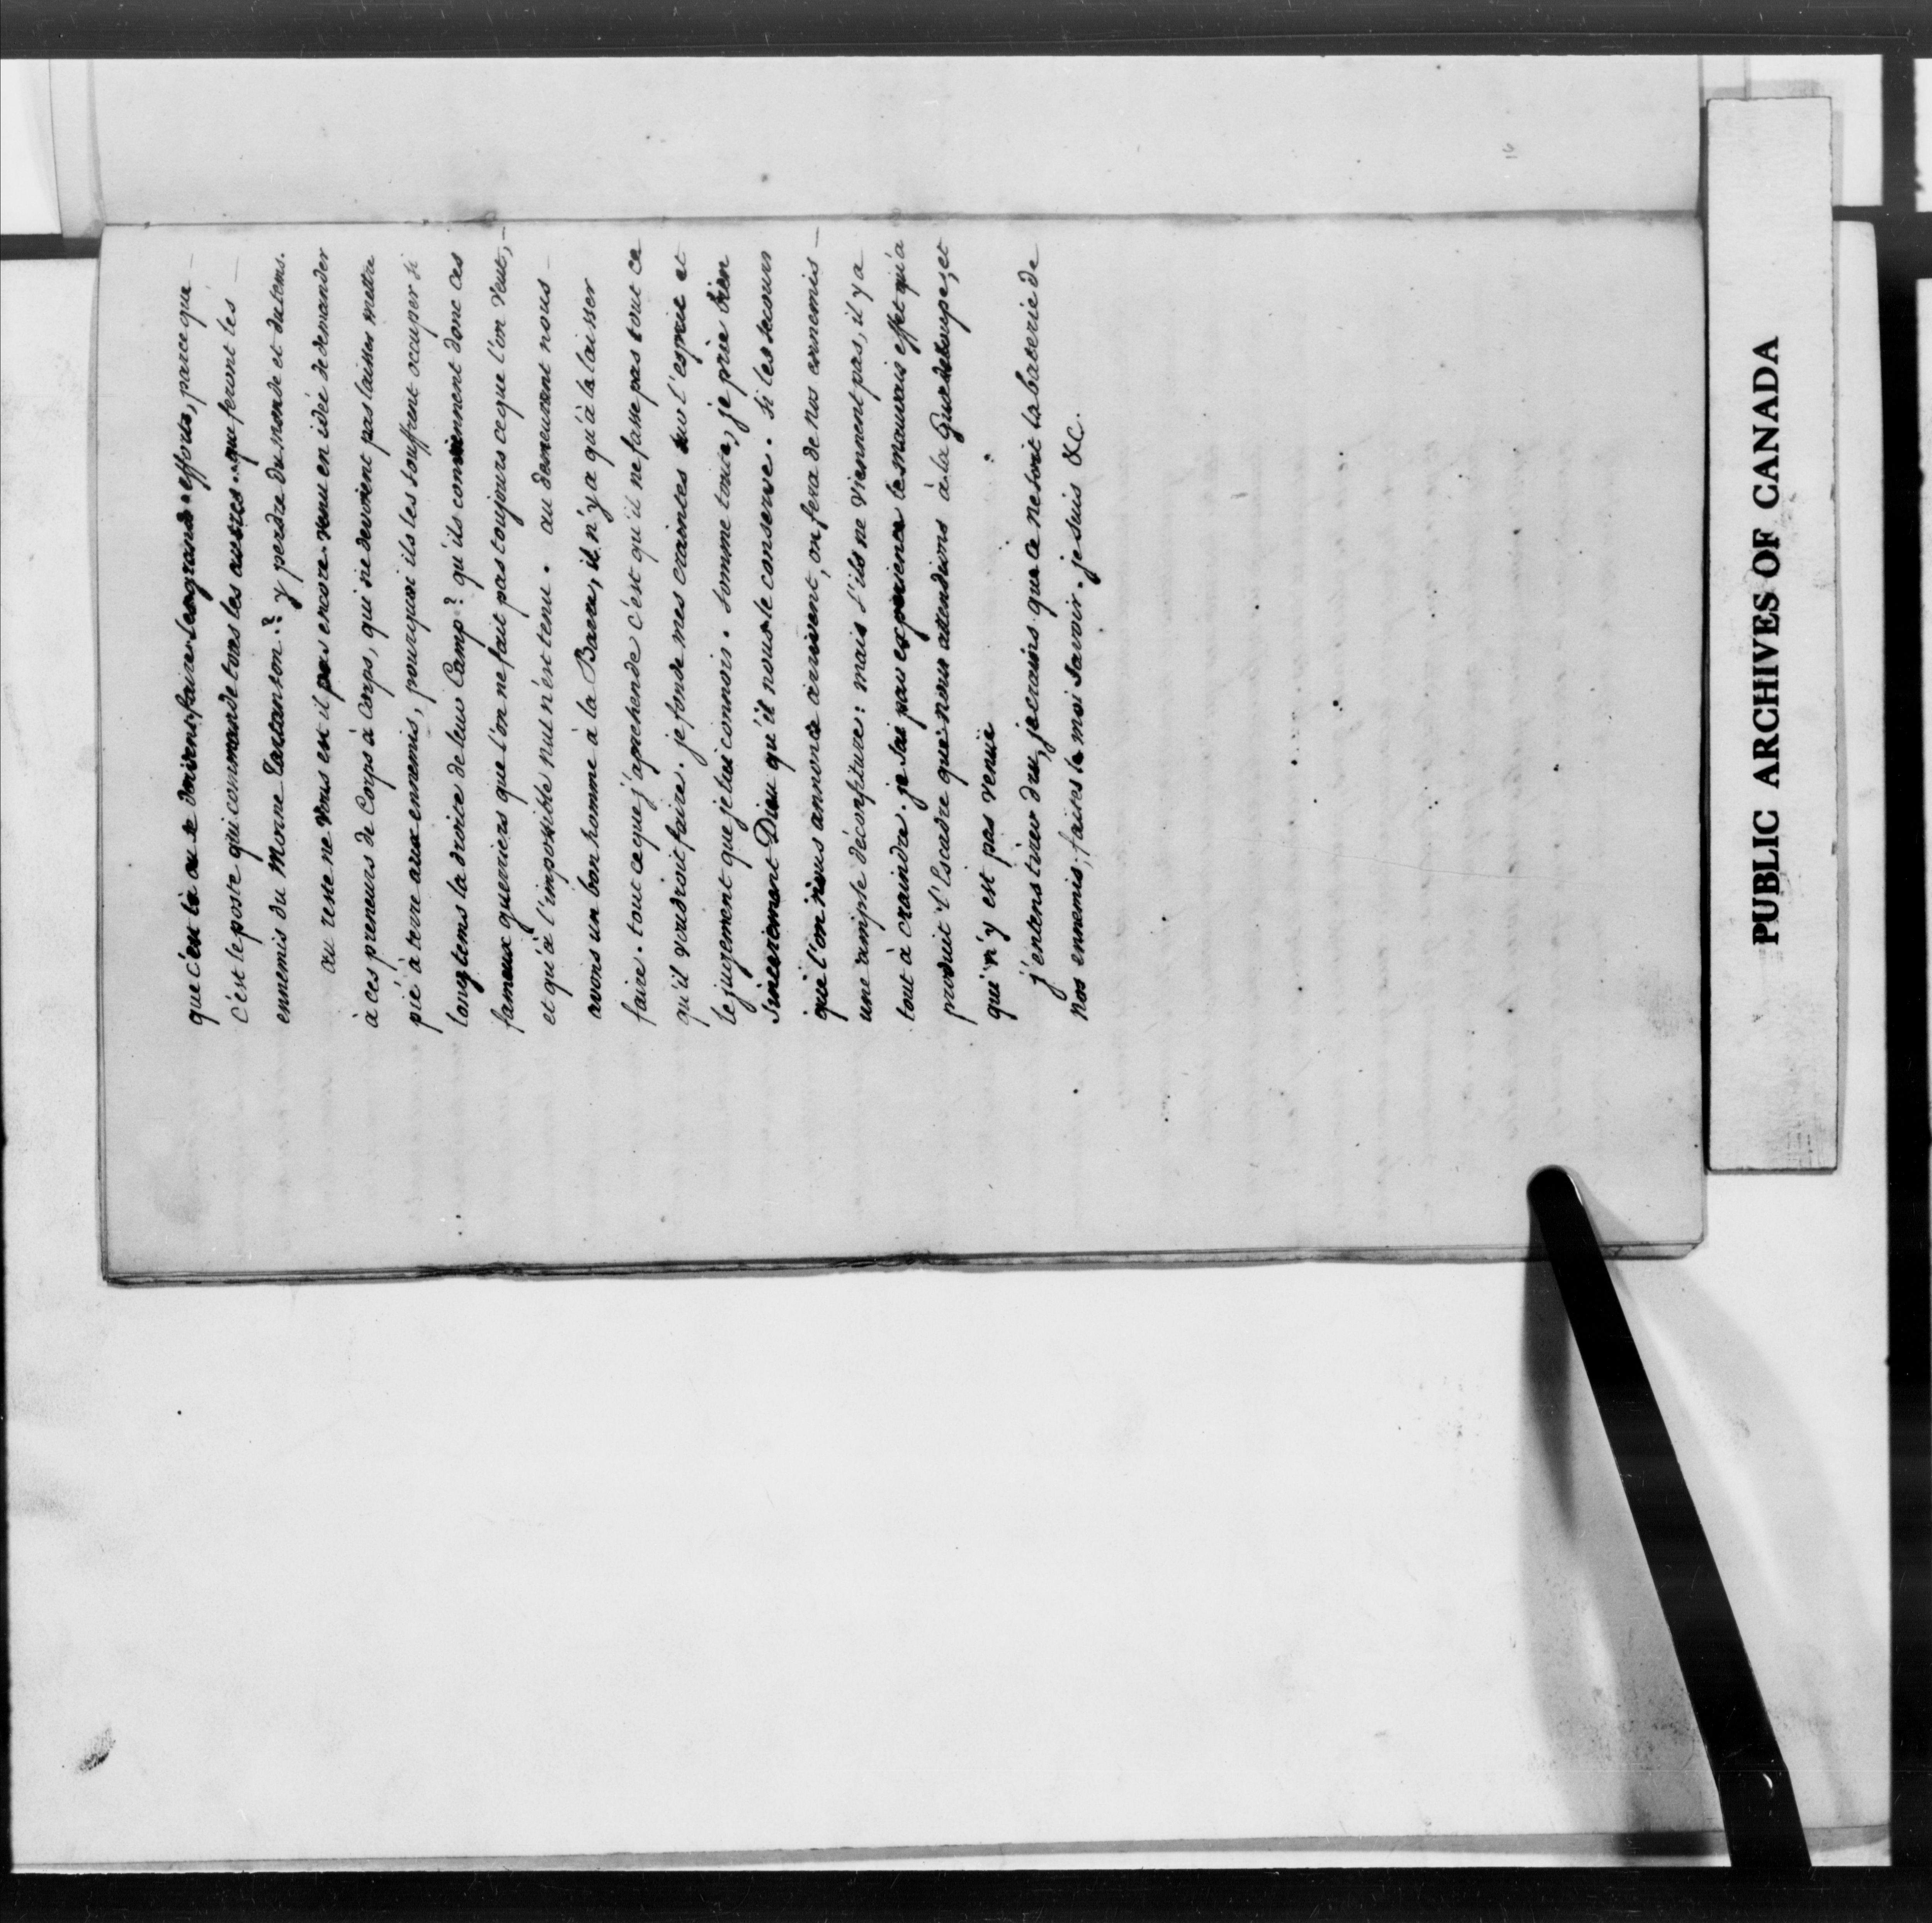 que c'en là ou se doivent faire les grands efforts, parceque
c'est le poste qui commande tous les autres. que feront les
ennemis du Morne Tartanson? y perdre du monde et du tems.
au reste ne vous est il pas encore venu en idée de demander
à ces preneurs de Corps à Corps, qui ne devroient pas laisser mettre
pié à terre aux ennemis, pourquoi ils les souffrent occuper si
longtems la droite de leur Camp? qu'ils conviennent donc ces
fameux guerriers que l'on ne fait pas toujours ce que l'on veut,
et qu'à l'impossible nul n'est tenu. au demeurant nous
avons un bon homme à la Barre, il n'y a qu'à la laisser
faire. tout ce que j'aprehende c'est qu'il ne fasse pas tout ce
qu'il voudroit faire. je fonde mes craintes sur l'esprit et
le jugement que je lui connois. somme toute, je prie bien
sincerement Dieu qu'il nous le conserve. si les secours
que l'on nous annonce arrivent, on fera de nos ennemis
une ample déconfiture: mais s'ils ne viennent pas, il y a
tout à craindre. je sai par experience le mauvais effet qu'a
produit l'Escadre que nous attendions à la Guadeloupe, et
qui n'y est pas venüe
j'entens tirer dru, je crains que ce ne soit la baterie de
nos ennemis; faites le moi savoir. je suis &c.
14
PUBLIC ARCHIVES OF CANADA